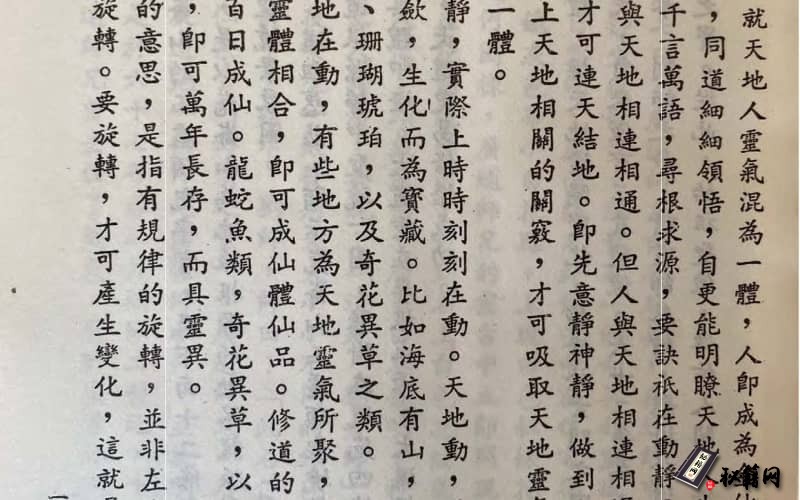 就天地人靈氣混為一體，人卽成為
，同道細細領悟，自更能明瞭天地
千言萬語，尋根求源，要訣祇在動靜
與天地相連相通。但人與天地相連相
才可連天結地。卽先意靜神靜，做到
上天地相關的關竅，才可吸取天地靈
一體。
靜，實際上時時刻刻在動。天地動，
斂，生化而為寶藏。比如海底有山，
、珊瑚琥珀，以及奇花異草之類。
地在動，有些地方為天地靈氣所聚，
靈體相合，卽可成仙體仙品。修道的
百日成仙。龍蛇魚類，奇花異草，以
，卽可萬年長存，而具靈異。
的意思，是指有規律的旋轉，並非左
旋轉。要旋轉，才可產生變化，這就
秘籍网